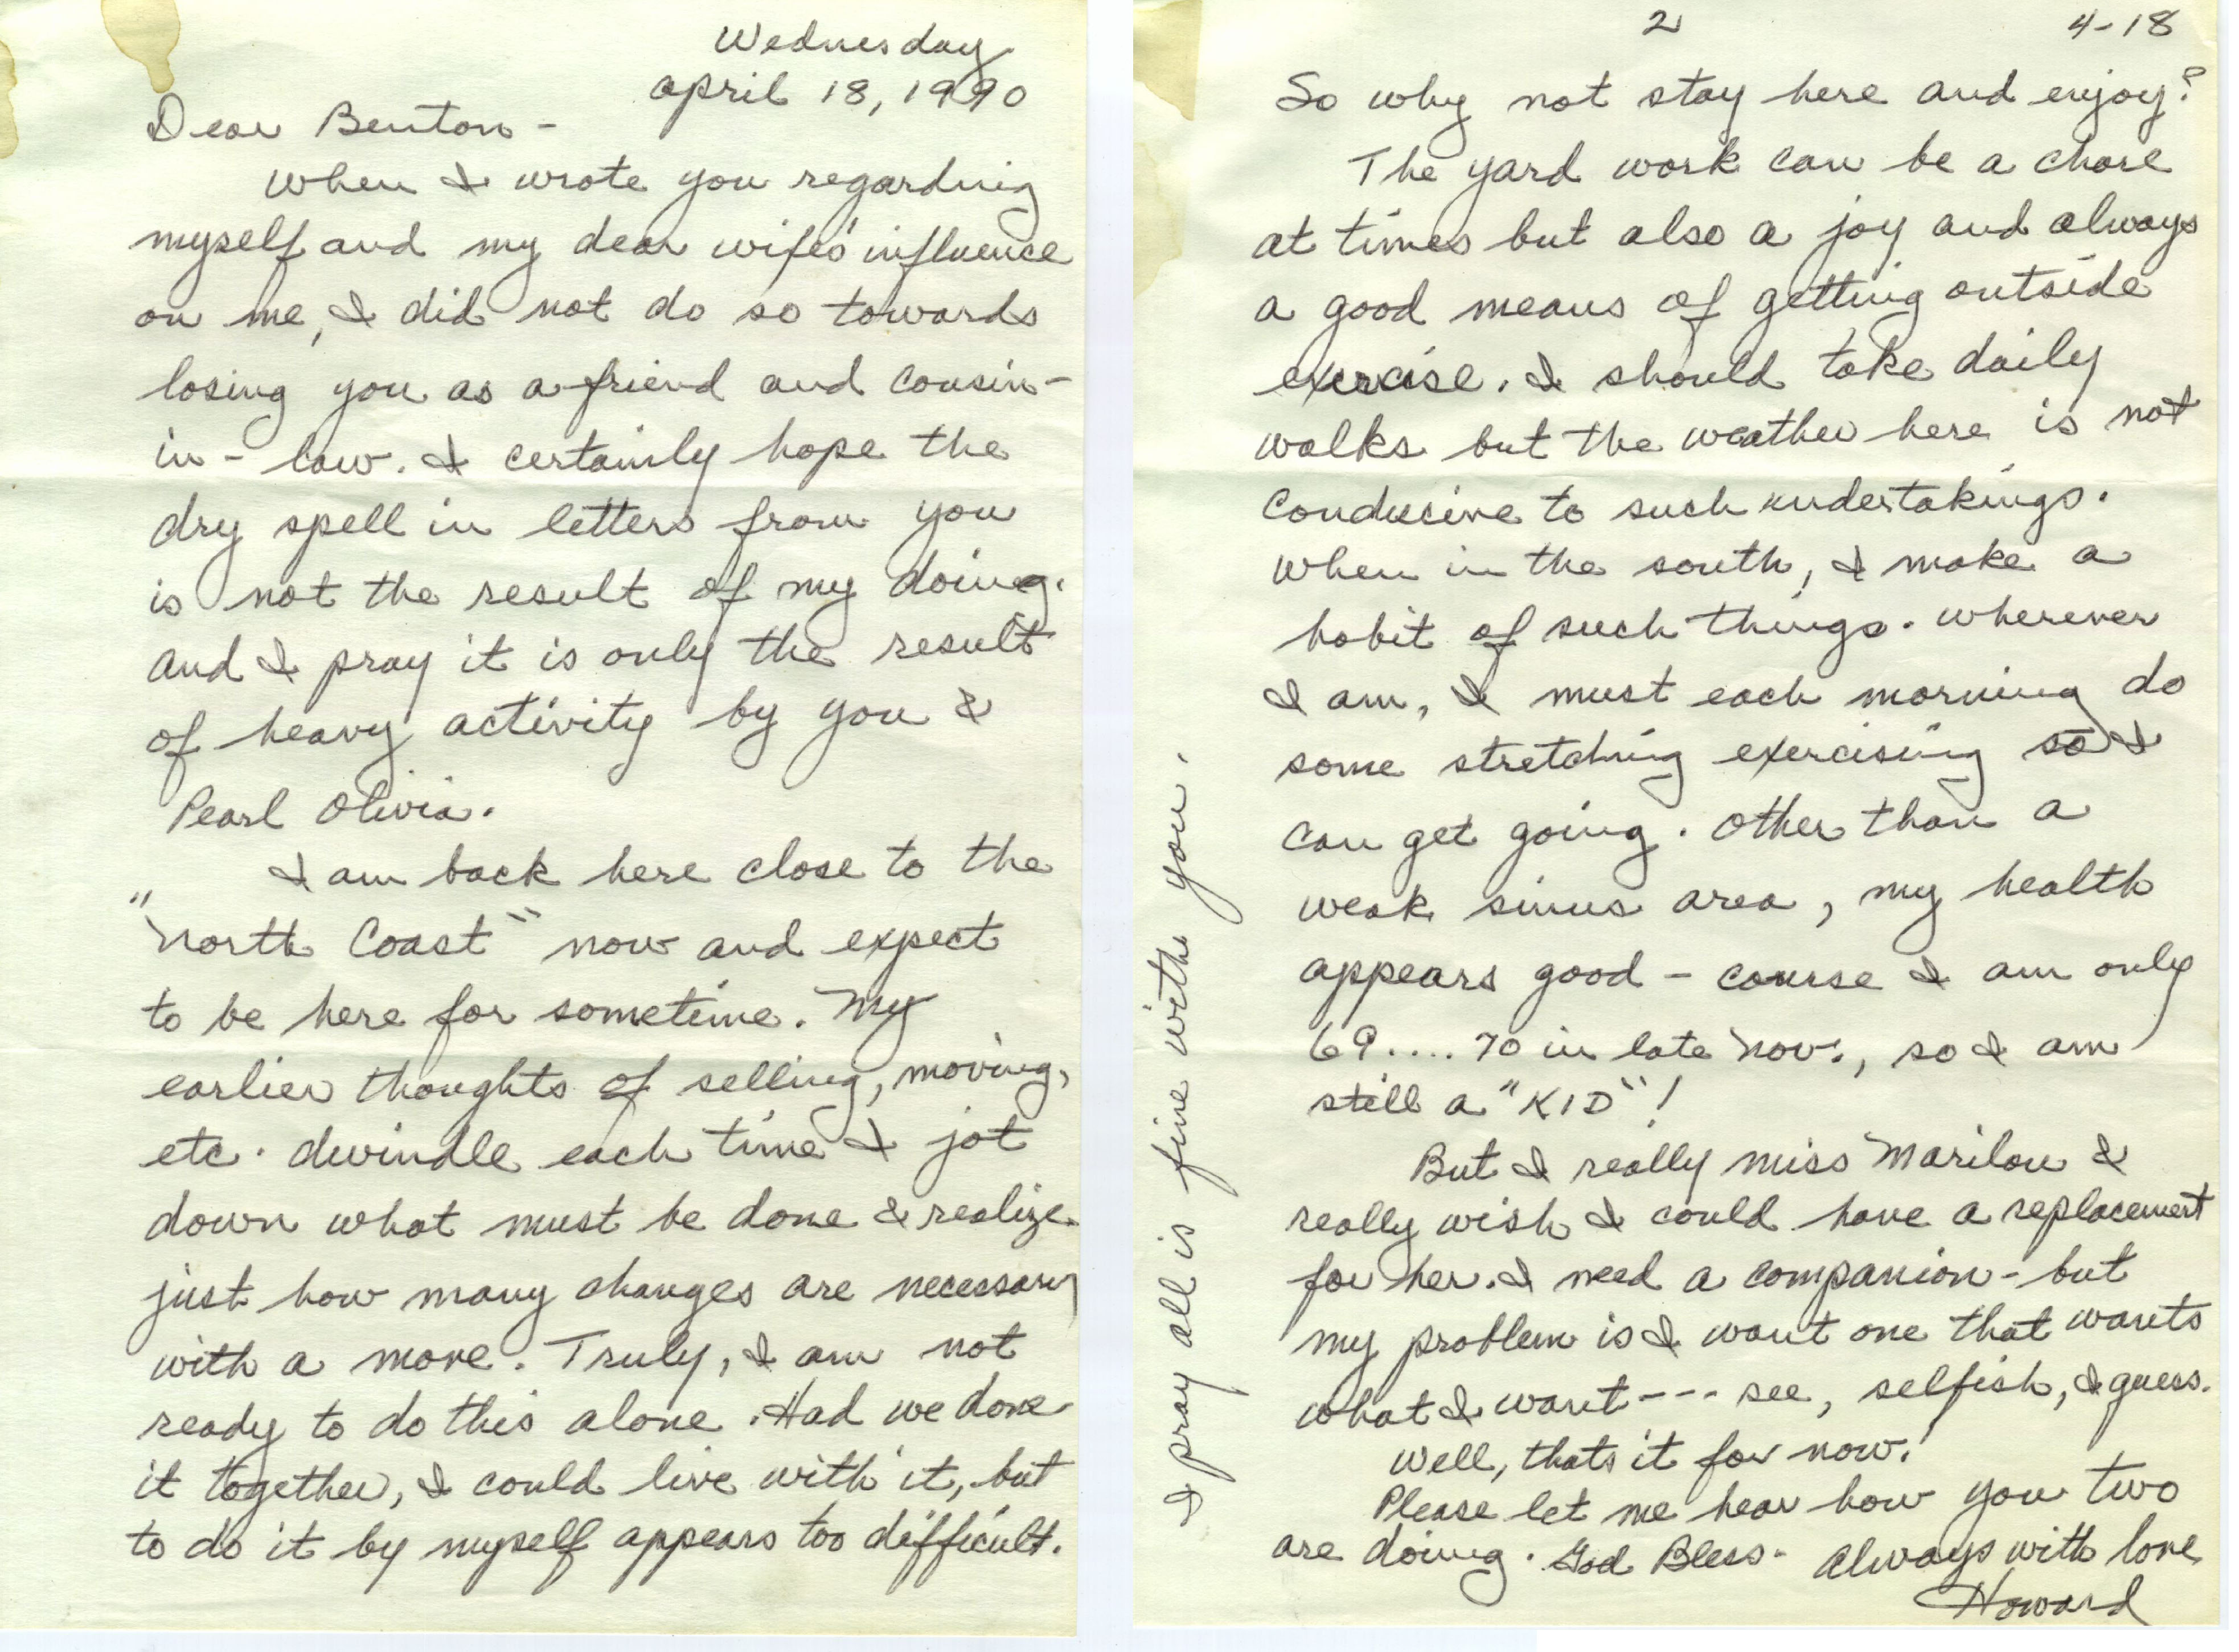 Wednesday
April 18, 1990
Dear Benton -
When I wrote you regarding
myself and my dear wife's influence
on me, I did not do so towards
losing you as a friend and cousin-
in-law. I certainly hope the
dry spell in letters from you
is not the result of my doing.
And I pray it is only the result
of heavy activity by you &
Pearl Olivia.
I am back here close to the
"North Coast" now and expect
to be here for sometime. My
earlier thoughts of selling, moving,
etc. dwindle each time I jot
down what must be done & realize
just how many changes are necessary
with a move. Truly, I am not
ready to do this alone. Had we done
it together, I could live with it, but
to do it by myself appears too difficult.
2 4-18
So why not stay here and enjoy?
The yard work can be a chore
at times but also a joy and always
a good means of getting outside
exercise. I should take daily
walks but the weather here is not
conducive to such undertakings.
When in the south, I make a
habit of such things. Wherever
I am, I must each morning do
some stretching exercising so I
can get going. Other than a
weak sinus area, my health
appears good - course I am only
69.... 70 in late Nov., so I am
still a "KID"!
But I really miss Marilou &
really wish I could have a replacement
for her. I need a companion - but
my problem is I want one that wants
what I want --- see, selfish, I guess.
Well, thats it for now.
Please let me hear how you two
are doing. God Bless. Always with love
Howard
I pray all is fine with you.